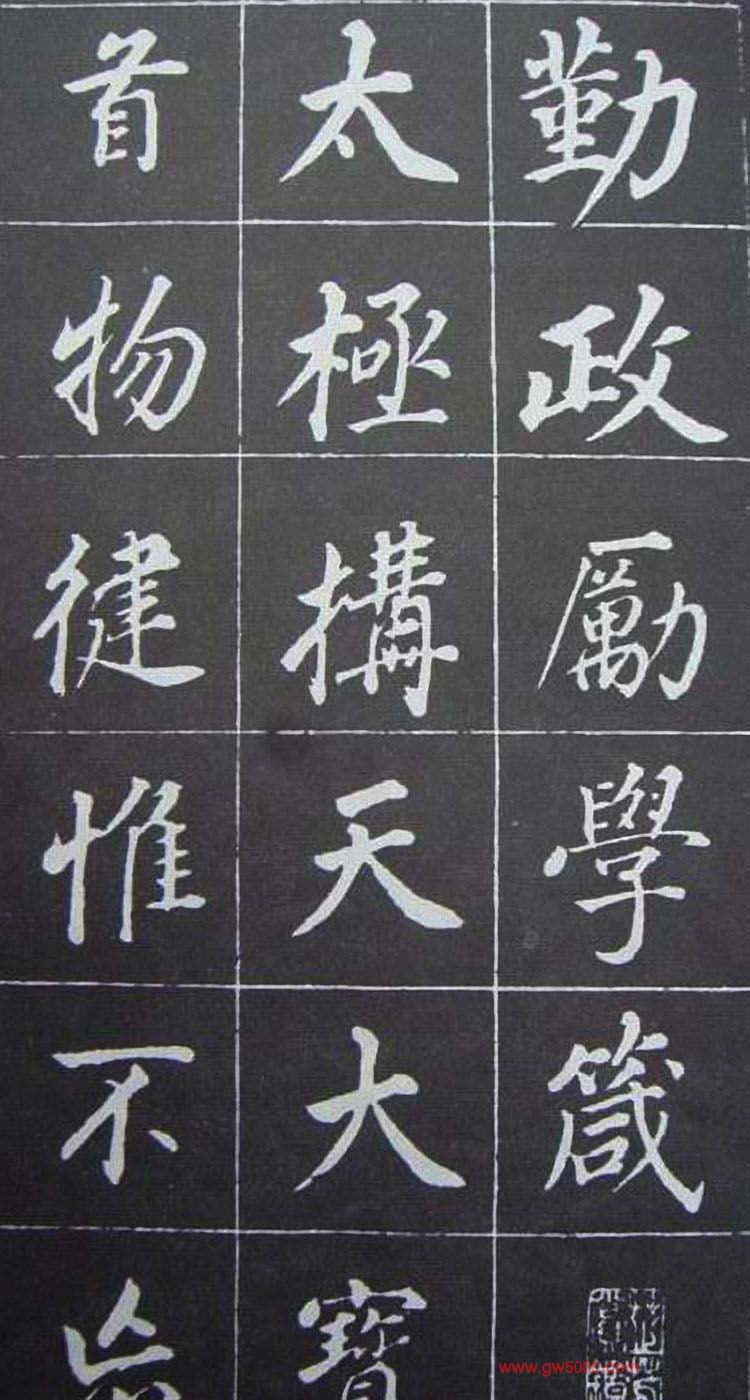 勤政勵學箴
太極搆天大寶
首物徤惟不
www.gw5000.com